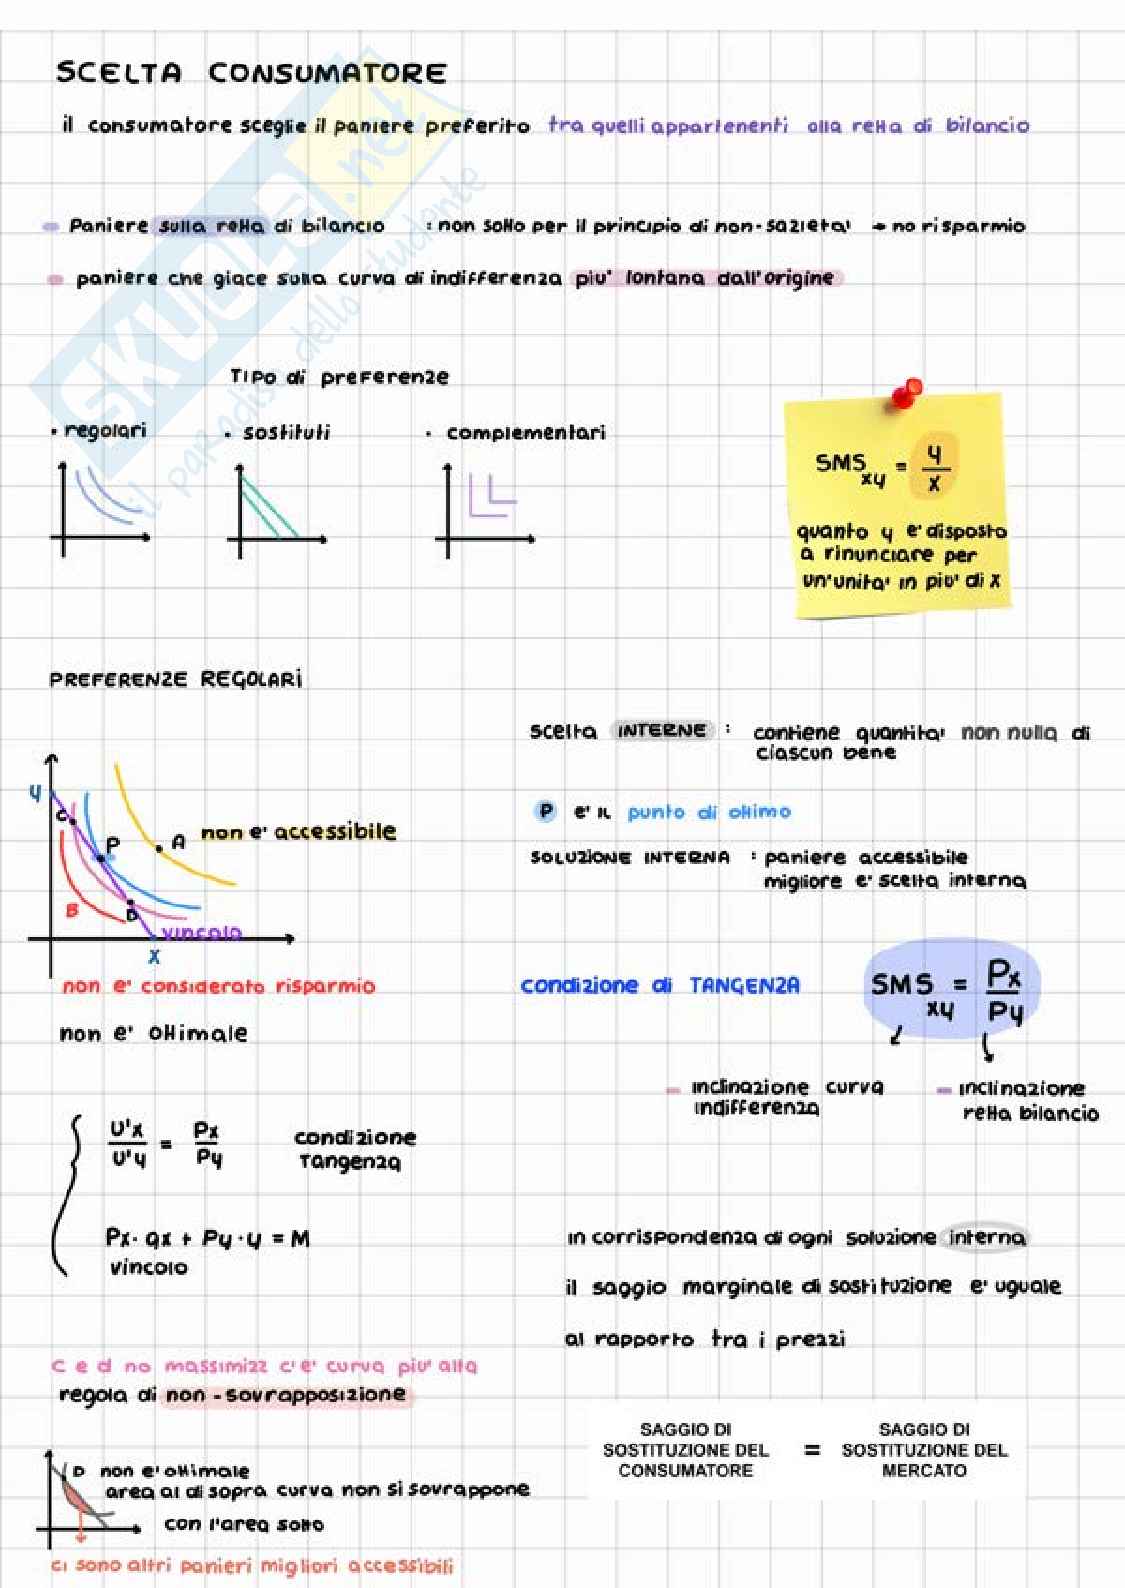 SCELTA CONSUMATORE
il consumatore sceglie il paniere preferito tra quelli appartenenti alla retta di bilancio
- Paniere sulla retta di bilancio : non sotto per il principio di non-sazieta' → no risparmio
- paniere che giace sulla curva di indifferenza piu' lontana dall'origine
TIPO di preferenze
· regolari · sostituti · complementari
SMS xy = y / x
quanto y e' disposto
a rinunciare per
un'unita' in piu' di x
PREFERENZE REGOLARI
scelta INTERNE : contiene quantita' non nulla di
ciascun bene
y
C
P
A non e' accessibile
B
D
vincolo
x
P e' il punto di ottimo
SOLUZIONE INTERNA : paniere accessibile
migliore e' scelta interna
non e' considerato risparmio
non e' ottimale
condizione di TANGENZA SMS xy = Px / Py
- inclinazione curva
indifferenza
- inclinazione
retta bilancio
U'x / U'y = Px / Py condizione
Tangenza
Px · qx + Py · y = M
vincolo
in corrispondenza di ogni soluzione interna
il saggio marginale di sostituzione e' uguale
al rapporto tra i prezzi
C e d no massimizz c'e' curva piu' alta
regola di non-sovrapposizione
SAGGIO DI
SOSTITUZIONE DEL
CONSUMATORE
=
SAGGIO DI
SOSTITUZIONE DEL
MERCATO
D non e' ottimale
area al di sopra curva non si sovrappone
con l'area sotto
ci sono altri panieri migliori accessibili
SKUOLA.net
il paradiso dello studente